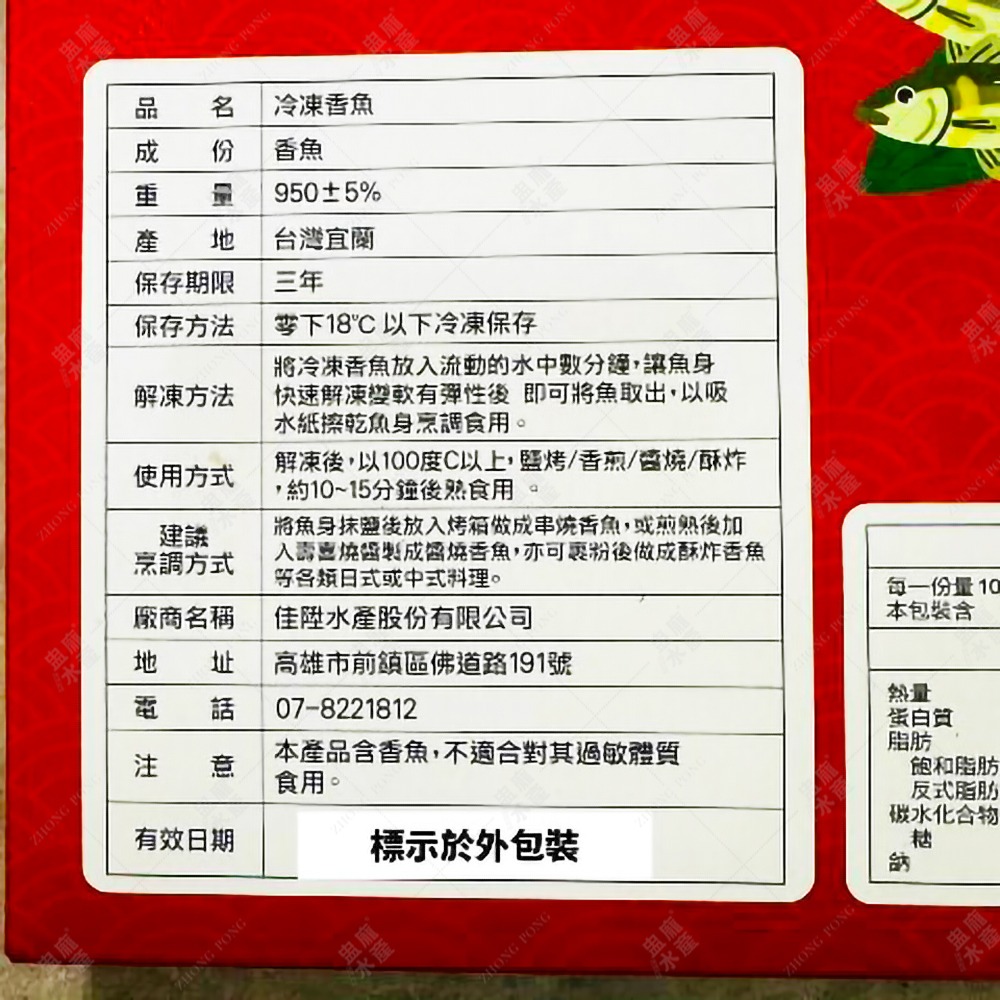 品名 冷凍香魚
成份 香魚
重量 950±5%
產地 台灣宜蘭
保存期限 三年
保存方法 零下18℃ 以下冷凍保存
解凍方法 將冷凍香魚放入流動的水中數分鐘，讓魚身
快速解凍變軟有彈性後 即可將魚取出，以吸
水紙擦乾魚身烹調食用。
使用方式 解凍後，以100度C以上，鹽烤/香煎/醬燒/酥炸
，約10~15分鐘後熟食用 。
建議
烹調方式 將魚身抹鹽後放入烤箱做成串燒香魚，或煎熟後加
入壽喜燒醬製成醬燒香魚，亦可裹粉後做成酥炸香魚
等各類日式或中式料理。
廠商名稱 佳陞水產股份有限公司
地址 高雄市前鎮區佛道路191號
電話 07-8221812
注意 本產品含香魚，不適合對其過敏體質
食用。
有效日期 標示於外包裝
每一份量 10
本包裝含
熱量
蛋白質
脂肪
飽和脂肪
反式脂肪
碳水化合物
糖
鈉
ZHONG PONG